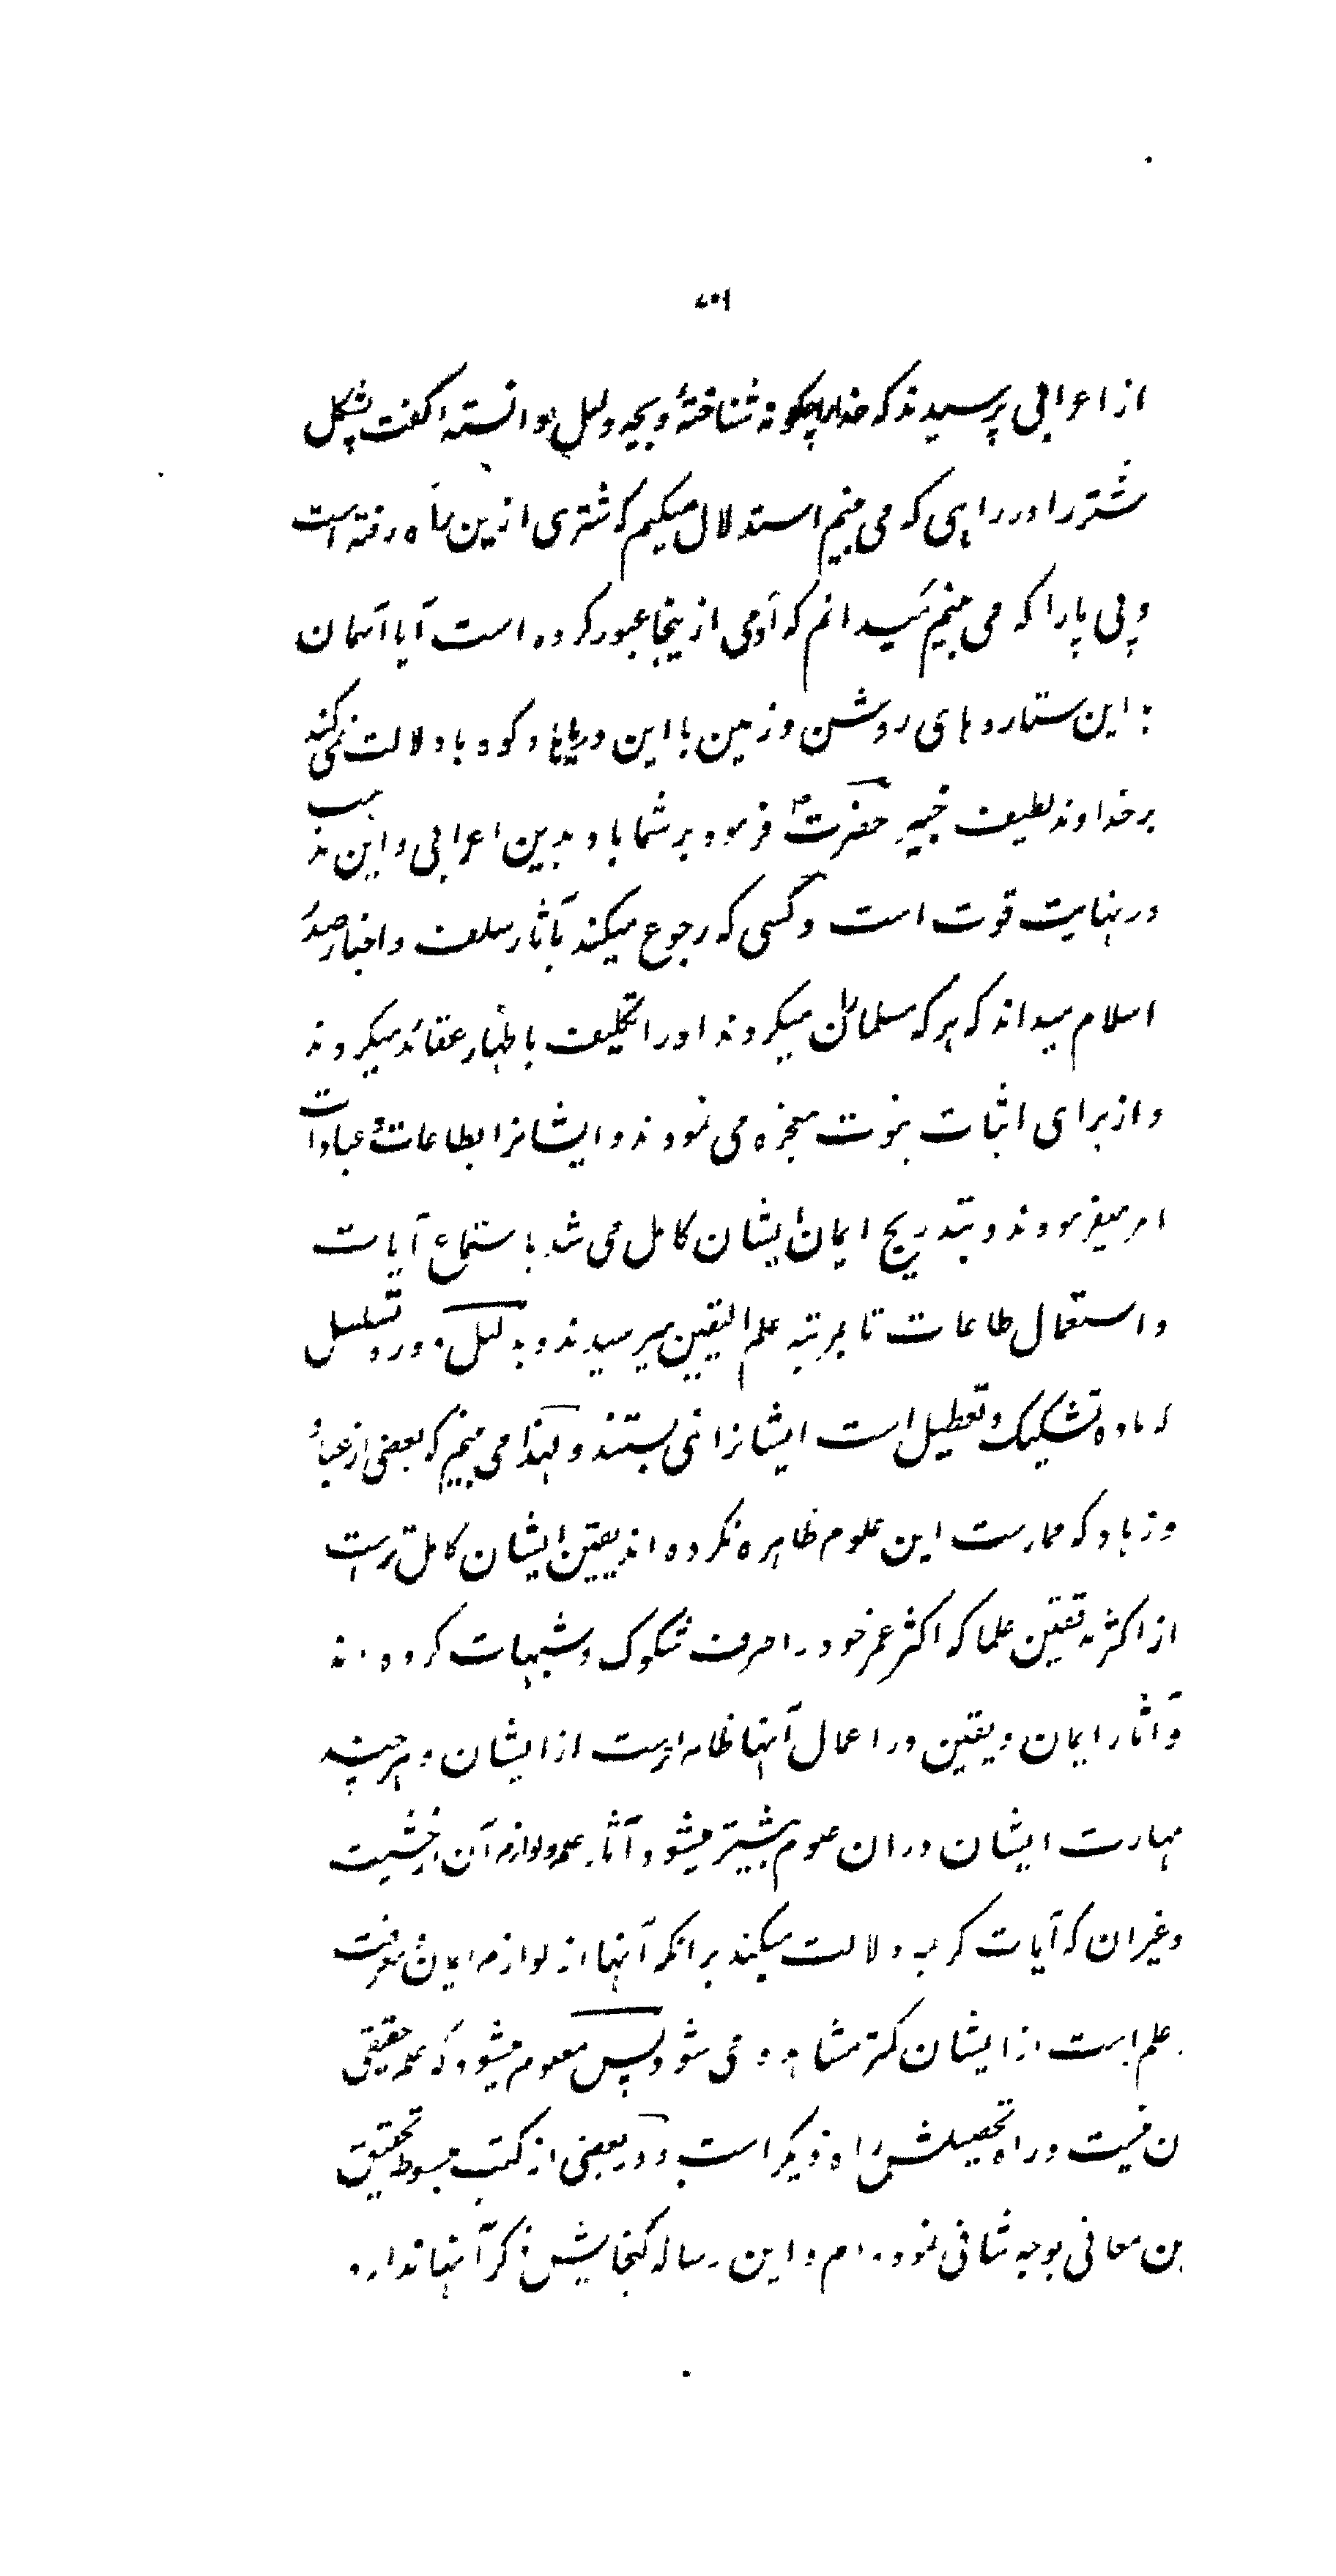 از اعرابی پرسیدند که خدا را چگونه شناختهٔ و بچه دلیل او را دانستهٔ گفت پشکل
شتر را در راهی که می بینم استدلال میکنم که شتری ازین راه رفته است
و پی پا را که می بینم میدانم که آدمی ازینجا عبور کرده است آیا آسمان
با این ستاره های روشن و زمین با این دریاها و کوه ها دلالت نمی کند
بر خداوند لطیف خبیر حضرت فرمود بر شما باد بدین اعرابی و این مذهب
در نهایت قوت است و کسی که رجوع میکند بآثار سلف و اخبار صدر
اسلام میداند که هر که مسلمان میکردند او را تکلیف باظهار عقائد میکردند
و از برای اثبات نبوت معجزه می نمودند و ایشانرا بطاعات و عبادات
امر میفرمودند و بتدریج ایمان ایشان کامل می شد باستماع آیات
و استعمال طاعات تا بمرتبه علم الیقین میرسیدند و بدلیل دور و تسلسل
که ماده تشکیک و تعطیل است ایشانرا نمی بستند و لهذا می بینم که بعضی از عباد
و زهاد که ممارست این علوم ظاهره نکرده اند یقین ایشان کامل ترست
از اکثر متقین علما که اکثر عمر خود را صرف شکوک و شبهات کرده اند
و آثار ایمان و یقین در اعمال آنها ظاهرترست از ایشان و هرچند
مهارت ایشان در ان علوم بیشتر میشود آثار علم و لوازم آن از خشیت
و غیر ان که آیات کریمه دلالت میکند بر انکه آنها از لوازم ایمان و معرفت
و علم است از ایشان کمتر مشاهده می شود پس معلوم میشود که علم حقیقی
ان نیست و راه تحصیلش راه دیگر است و در بعضی از کتب مبسوط تحقیق
این معانی بوجه شافی نموده ام و این رساله گنجایش ذکر آنها ندارد.